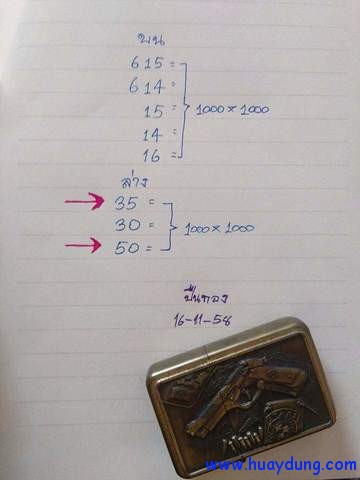 บน
615 =
614 =
15 =
14 =
16 =
1000 × 1000
ล่าง
35 =
30 =
50 =
1000 × 1000
ปืนทอง
16-11-58
www.huaydung.com